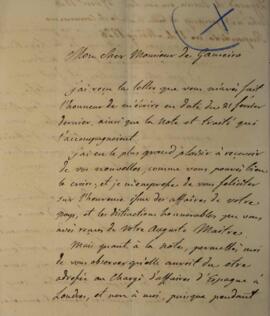 Mon cher Monsieur de Gameiro
J'ai reçu la lettre que vous m'avez fait
l'honneur de m'écrire en date du 21 février
dernier, ainsi que la Note et traité qui
l'accompagnaient.
J'ai eu le plus grand plaisir à recevoir
de vos nouvelles, comme vous pouvez bien
le croire; et je m'empresse de vous féliciter
sur l'heureuse issue des affaires de votre
pays, et les distinctions honorables que vous
avez reçues de votre Auguste Maître
Mais quant à la Note, permettez moi
de vous observer qu'elle auroit du etre
adressée au Chargé d'affaires d'Espagne à
Londres, et non à moi, puisque pendant